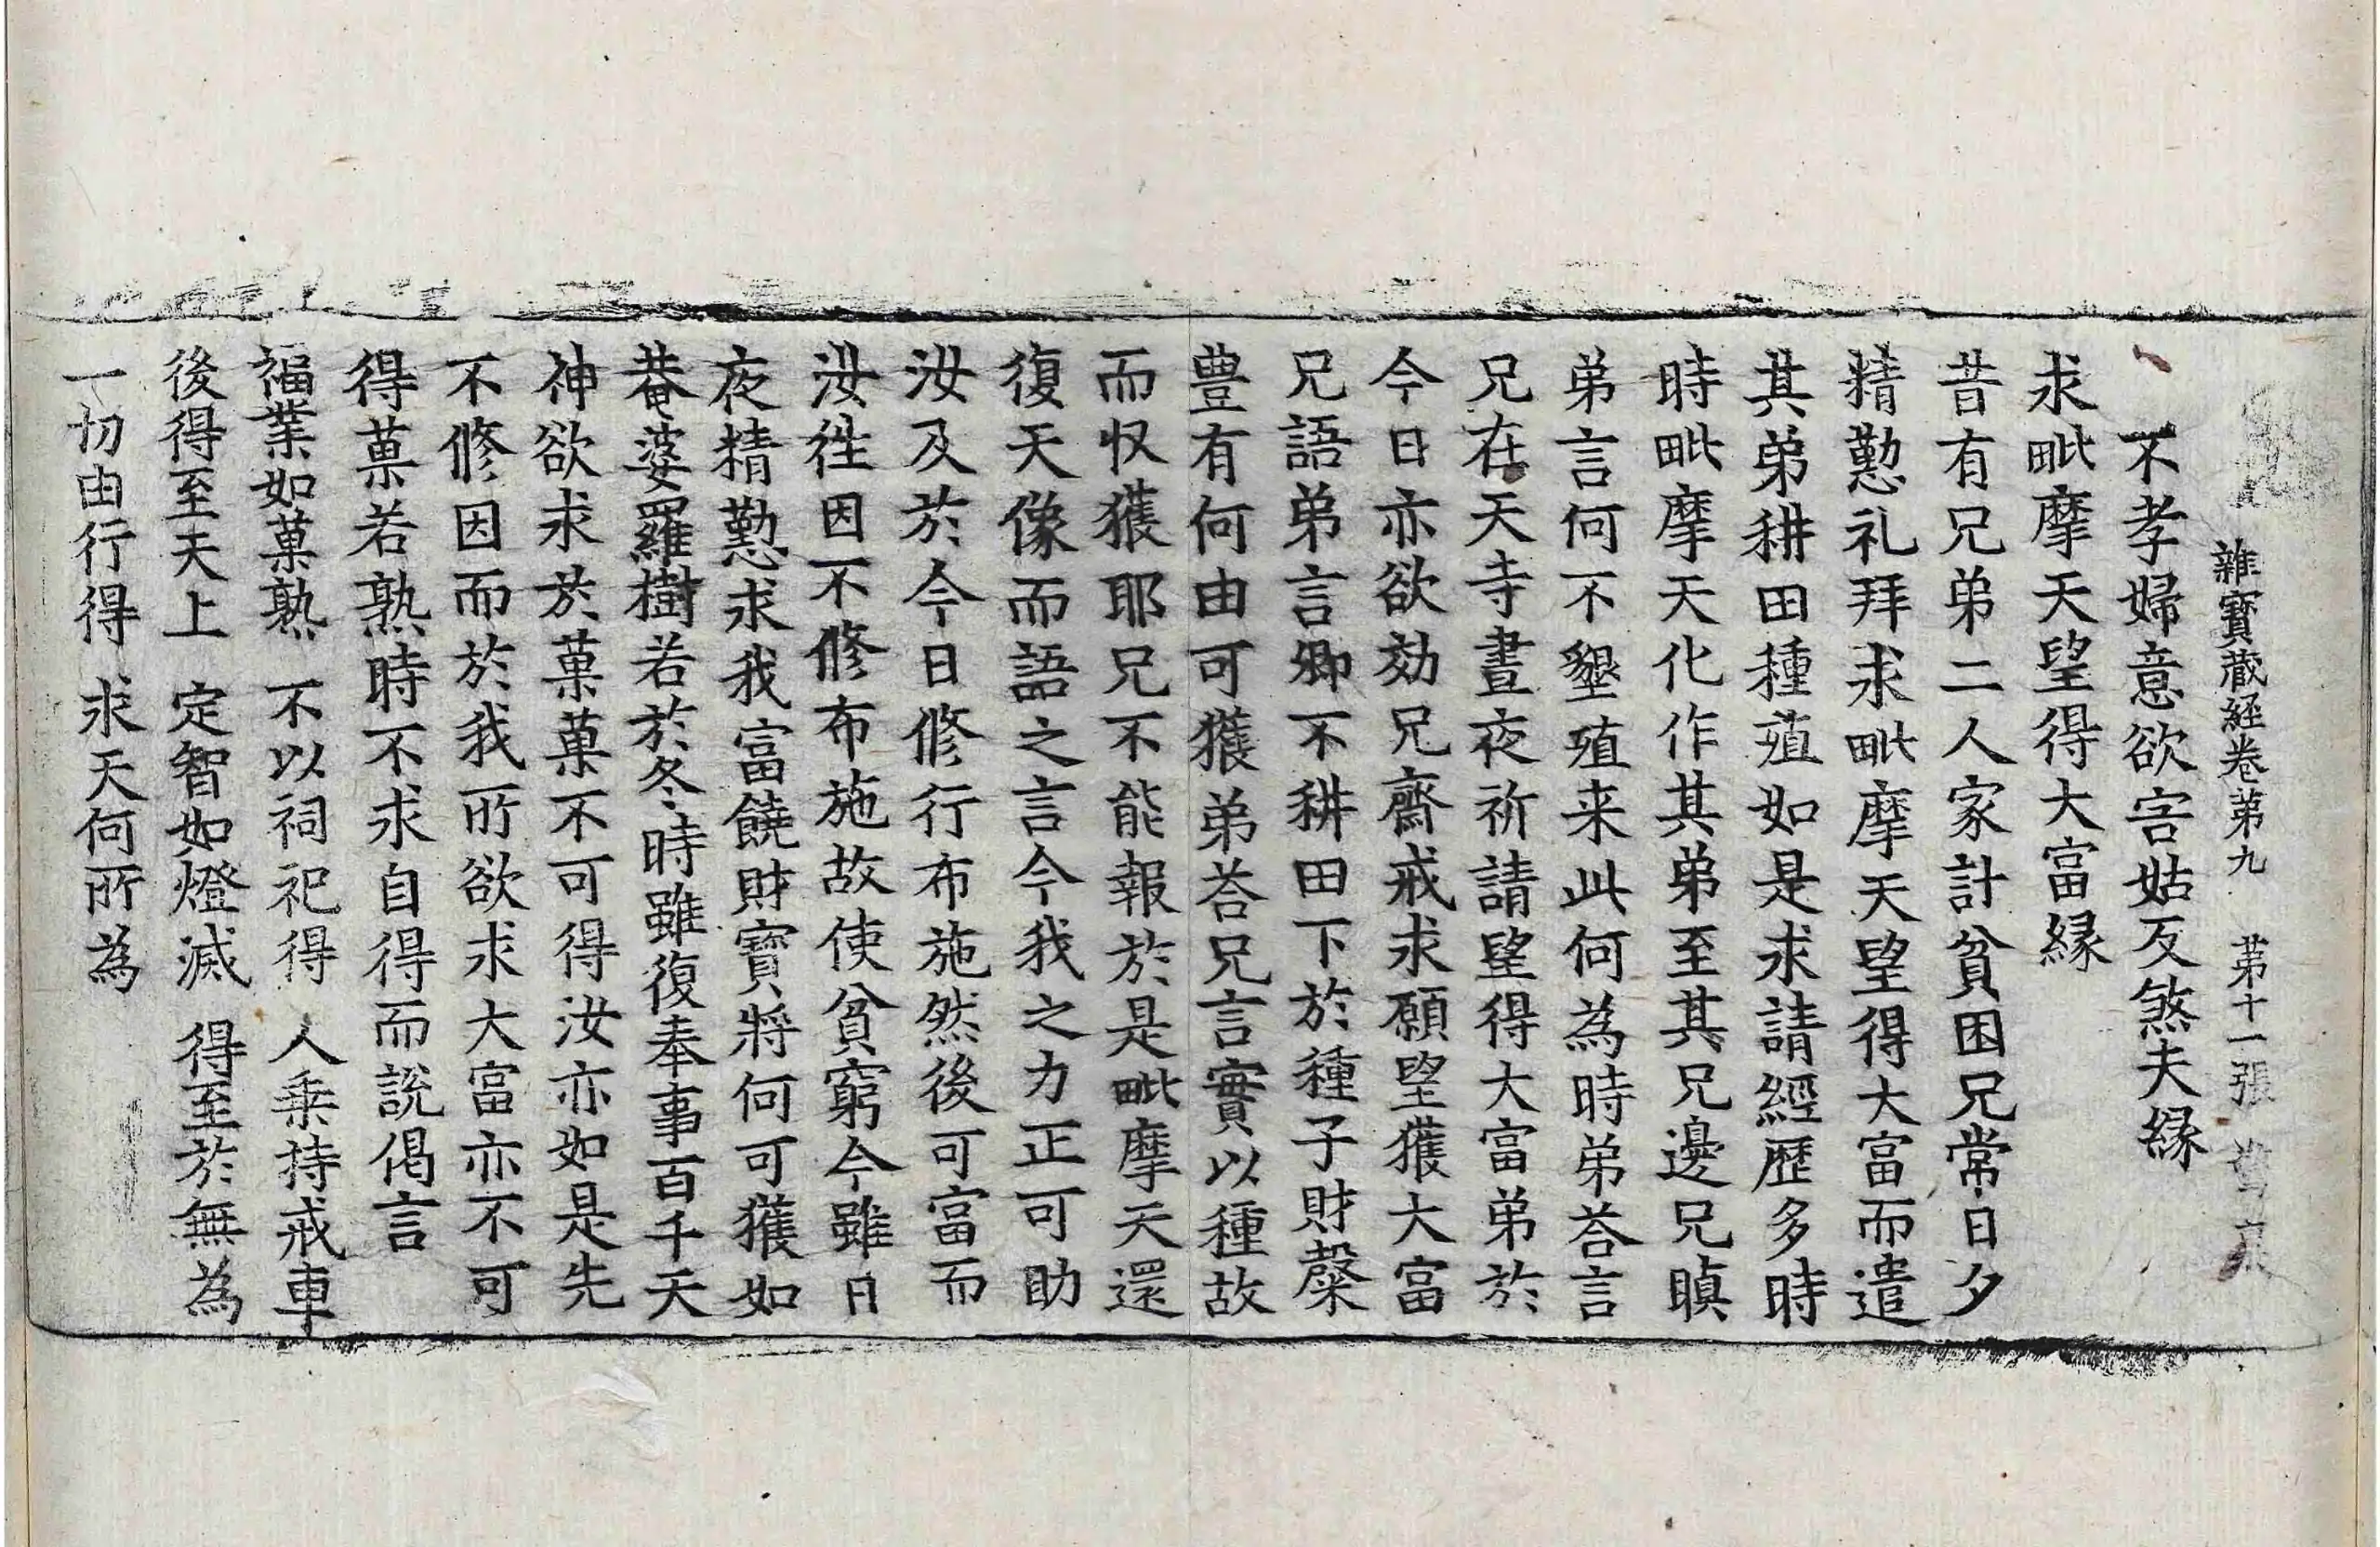 雜寶蔵経卷第九 第十一張
不孝婦意欲害姑反煞夫縁
求毗摩天望得大富縁
昔有兄弟二人家計貧困兄常日夕
精懃礼拜求毗摩天望得大富而遣
其弟耕田種殖如是求請經歷多時
時毗摩天化作其弟至其兄邊兄瞋
弟言何不墾殖来此何為時弟荅言
兄在天寺晝夜祈請望得大富弟於
今日亦欲効兄齋戒求願望獲大富
兄語弟言卿不耕田下於種子財槃
豊有何由可獲弟荅兄言實以種故
而収獲耶兄不能報於是毗摩天還
復天像而語之言今我之力正可助
汝及於今日修行布施然後可富而
汝徃因不修布施故使貧窮今雖日
夜精懃求我富饒財寶將何可獲如
菴婆羅樹若於冬時雖復奉事百千天
神欲求於菓菓不可得汝亦如是先
不修因而於我所欲求大富亦不可
得菓若熟時不求自得而說偈言
福業如菓熟 不以祠祀得 人乗持戒車
後得至天上 定智如燈滅 得至於無為
一切由行得 求天何所為